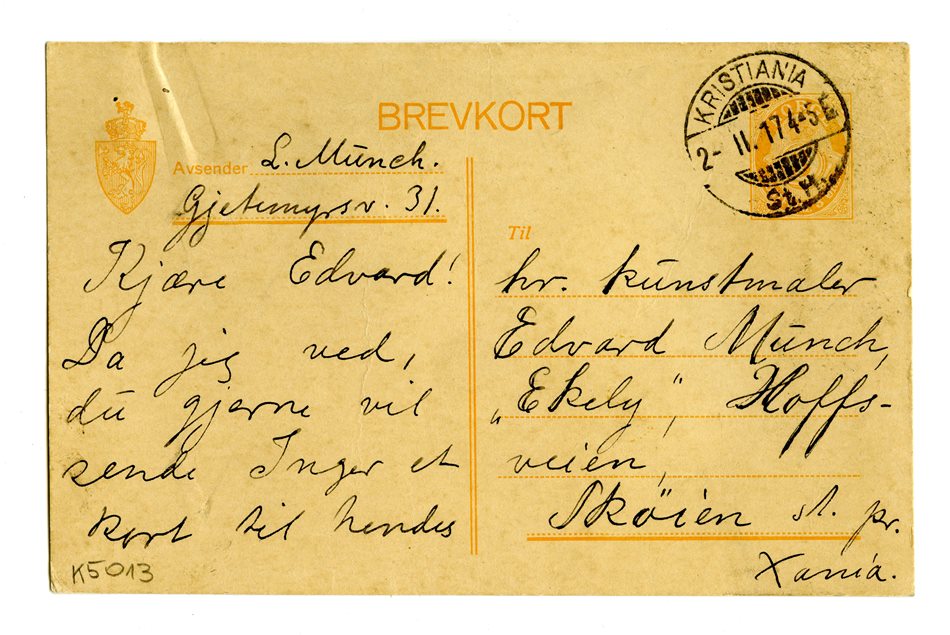 BREVKORT
Avsender L. Münch.
Gjetemyrsv. 31.
Kjære Edvard!
Da jeg ved,
du gjerne vil
sende Inger et
kort til hendes
K5013
KRISTIANIA
2- II. 17 4-5 E
St.H.
Til
hr. kunstmaler
Edvard Münch,
„Ekely", Hoffs-
veien,
Sköien st. pr.
Xania.